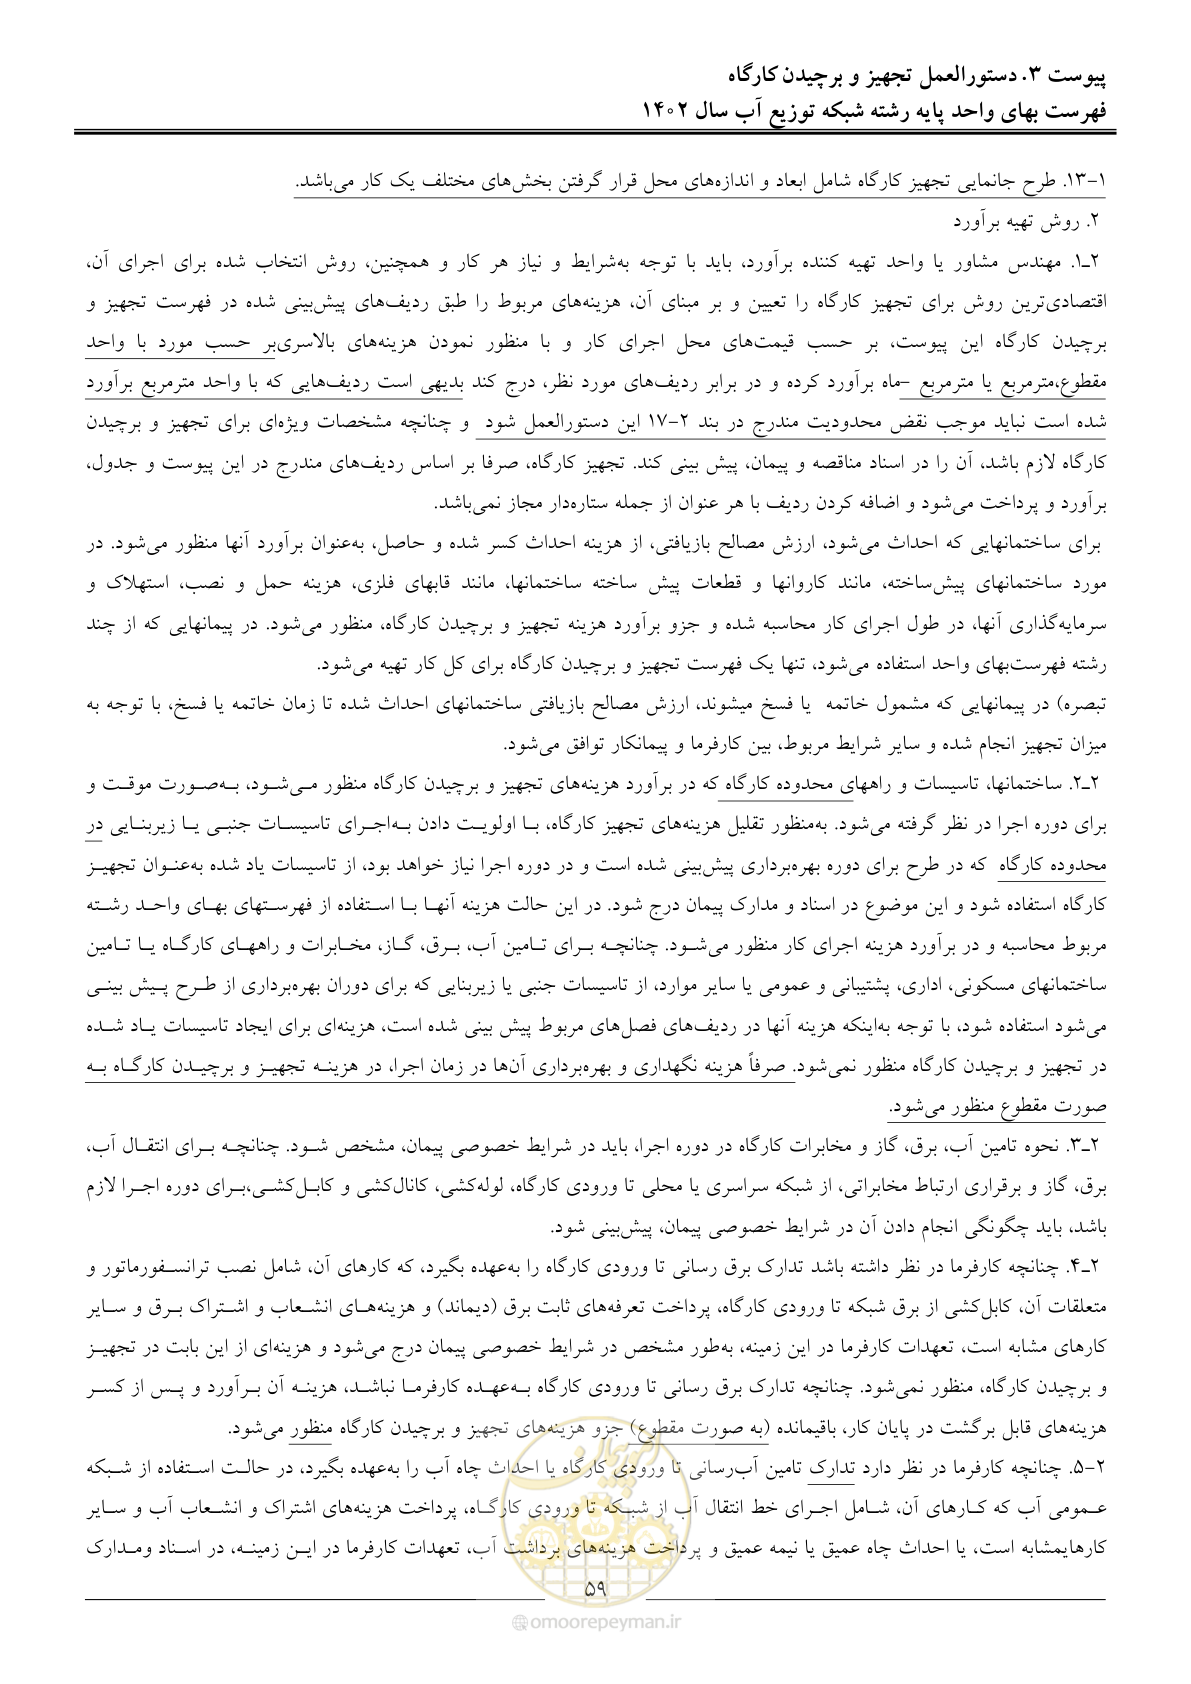 پیوست ۳. دستورالعمل تجهیز و برچیدن کارگاه
فهرست بهای واحد پایه رشته شبکه توزیع آب سال ۱۴۰۲
۱-۱۳. طرح جانمایی تجهیز کارگاه شامل ابعاد و اندازه‌های محل قرار گرفتن بخش‌های مختلف یک کار می‌باشد.
۲. روش تهیه برآورد
۲ـ۱. مهندس مشاور یا واحد تهیه کننده برآورد، باید با توجه به‌شرایط و نیاز هر کار و همچنین، روش انتخاب شده برای اجرای آن،
اقتصادی‌ترین روش برای تجهیز کارگاه را تعیین و بر مبنای آن، هزینه‌های مربوط را طبق ردیف‌های پیش‌بینی شده در فهرست تجهیز و
برچیدن کارگاه این پیوست، بر حسب قیمت‌های محل اجرای کار و با منظور نمودن هزینه‌های بالاسری‌بر حسب مورد با واحد
مقطوع،مترمربع یا مترمربع –ماه برآورد کرده و در برابر ردیف‌های مورد نظر، درج کند بدیهی است ردیف‌هایی که با واحد مترمربع برآورد
شده است نباید موجب نقض محدودیت مندرج در بند ۲-۱۷ این دستورالعمل شود و چنانچه مشخصات ویژه‌ای برای تجهیز و برچیدن
کارگاه لازم باشد، آن را در اسناد مناقصه و پیمان، پیش بینی کند. تجهیز کارگاه، صرفا بر اساس ردیف‌های مندرج در این پیوست و جدول،
برآورد و پرداخت می‌شود و اضافه کردن ردیف با هر عنوان از جمله ستاره‌دار مجاز نمی‌باشد.
برای ساختمانهایی که احداث می‌شود، ارزش مصالح بازیافتی، از هزینه احداث کسر شده و حاصل، به‌عنوان برآورد آنها منظور می‌شود. در
مورد ساختمانهای پیش‌ساخته، مانند کاروانها و قطعات پیش ساخته ساختمانها، مانند قابهای فلزی، هزینه حمل و نصب، استهلاک و
سرمایه‌گذاری آنها، در طول اجرای کار محاسبه شده و جزو برآورد هزینه تجهیز و برچیدن کارگاه، منظور می‌شود. در پیمانهایی که از چند
رشته فهرست‌بهای واحد استفاده می‌شود، تنها یک فهرست تجهیز و برچیدن کارگاه برای کل کار تهیه می‌شود.
تبصره) در پیمانهایی که مشمول خاتمه یا فسخ میشوند، ارزش مصالح بازیافتی ساختمانهای احداث شده تا زمان خاتمه یا فسخ، با توجه به
میزان تجهیز انجام شده و سایر شرایط مربوط، بین کارفرما و پیمانکار توافق می‌شود.
۲ـ۲. ساختمانها، تاسیسات و راههای محدوده کارگاه که در برآورد هزینه‌های تجهیز و برچیدن کارگاه منظور مـی‌شـود، بـه‌صـورت موقـت و
برای دوره اجرا در نظر گرفته می‌شود. به‌منظور تقلیل هزینه‌های تجهیز کارگاه، بـا اولویـت دادن بـه‌اجـرای تاسیسـات جنبـی یـا زیربنـایی در
محدوده کارگاه که در طرح برای دوره بهره‌برداری پیش‌بینی شده است و در دوره اجرا نیاز خواهد بود، از تاسیسات یاد شده به‌عنـوان تجهیـز
کارگاه استفاده شود و این موضوع در اسناد و مدارک پیمان درج شود. در این حالت هزینه آنهـا بـا اسـتفاده از فهرسـتهای بهـای واحـد رشـته
مربوط محاسبه و در برآورد هزینه اجرای کار منظور می‌شـود. چنانچـه بـرای تـامین آب، بـرق، گـاز، مخـابرات و راههـای کارگـاه یـا تـامین
ساختمانهای مسکونی، اداری، پشتیبانی و عمومی یا سایر موارد، از تاسیسات جنبی یا زیربنایی که برای دوران بهره‌برداری از طـرح پـیش بینـی
می‌شود استفاده شود، با توجه به‌اینکه هزینه آنها در ردیف‌های فصل‌های مربوط پیش بینی شده است، هزینه‌ای برای ایجاد تاسیسات یـاد شـده
در تجهیز و برچیدن کارگاه منظور نمی‌شود. صرفاً هزینه نگهداری و بهره‌برداری آن‌ها در زمان اجرا، در هزینـه تجهیـز و برچیـدن کارگـاه بـه
صورت مقطوع منظور می‌شود.
۲ـ۳. نحوه تامین آب، برق، گاز و مخابرات کارگاه در دوره اجرا، باید در شرایط خصوصی پیمان، مشخص شـود. چنانچـه بـرای انتقـال آب،
برق، گاز و برقراری ارتباط مخابراتی، از شبکه سراسری یا محلی تا ورودی کارگاه، لوله‌کشی، کانال‌کشی و کابـل‌کشـی،بـرای دوره اجـرا لازم
باشد، باید چگونگی انجام دادن آن در شرایط خصوصی پیمان، پیش‌بینی شود.
۲ـ۴. چنانچه کارفرما در نظر داشته باشد تدارک برق رسانی تا ورودی کارگاه را به‌عهده بگیرد، که کارهای آن، شامل نصب ترانسـفورماتور و
متعلقات آن، کابل‌کشی از برق شبکه تا ورودی کارگاه، پرداخت تعرفه‌های ثابت برق (دیماند) و هزینه‌هـای انشـعاب و اشـتراک بـرق و سـایر
کارهای مشابه است، تعهدات کارفرما در این زمینه، به‌طور مشخص در شرایط خصوصی پیمان درج می‌شود و هزینه‌ای از این بابت در تجهیـز
و برچیدن کارگاه، منظور نمی‌شود. چنانچه تدارک برق رسانی تا ورودی کارگاه بـه‌عهـده کارفرمـا نباشـد، هزینـه آن بـرآورد و پـس از کسـر
هزینه‌های قابل برگشت در پایان کار، باقیمانده (به صورت مقطوع) جزو هزینه‌های تجهیز و برچیدن کارگاه منظور می‌شود.
۲-۵. چنانچه کارفرما در نظر دارد تدارک تامین آب‌رسانی تا ورودی کارگاه یا احداث چاه آب را به‌عهده بگیرد، در حالـت استفاده از شـبکه
عـمومی آب که کـارهای آن، شـامل اجـرای خط انتقال آب از شبـکه تا ورودی کارگـاه، پرداخت هزینه‌های اشتراک و انشـعاب آب و سـایر
کارهایمشابه است، یا احداث چاه عمیق یا نیمه عمیق و پرداخت هزینه‌های برداشت آب، تعهدات کارفرما در ایـن زمینـه، در اسـناد ومـدارک
۵۹
omoorepeyman.ir